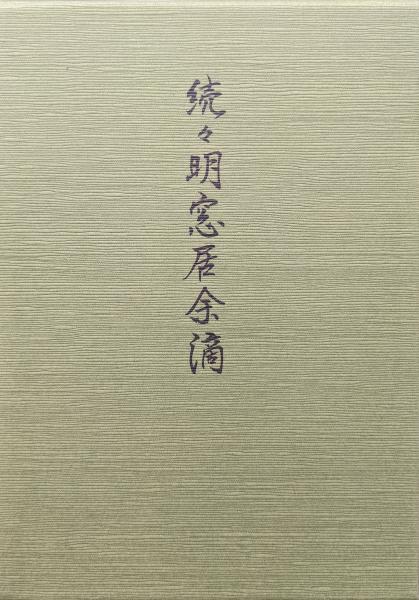 続々明窓居余滴